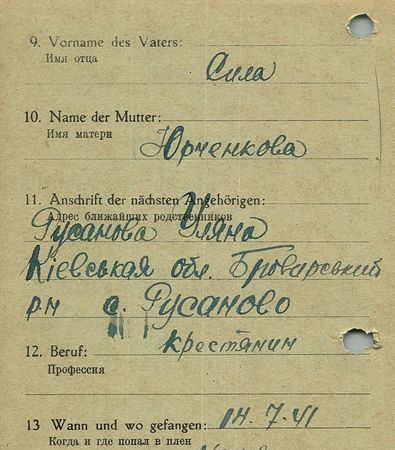 9. Vorname des Vaters:
Имя отца
Сила
10. Name der Mutter:
Имя матери
Юрченкова
11. Anschrift der nächsten Angehörigen:
Адрес ближайших родственников
Русанова Уляна
Кіевськая обл. Броварський
р-н с. Русаново
12. Beruf: крестянин
Профессия
13 Wann und wo gefangen: 14.7.41
Когда и где попал в плен